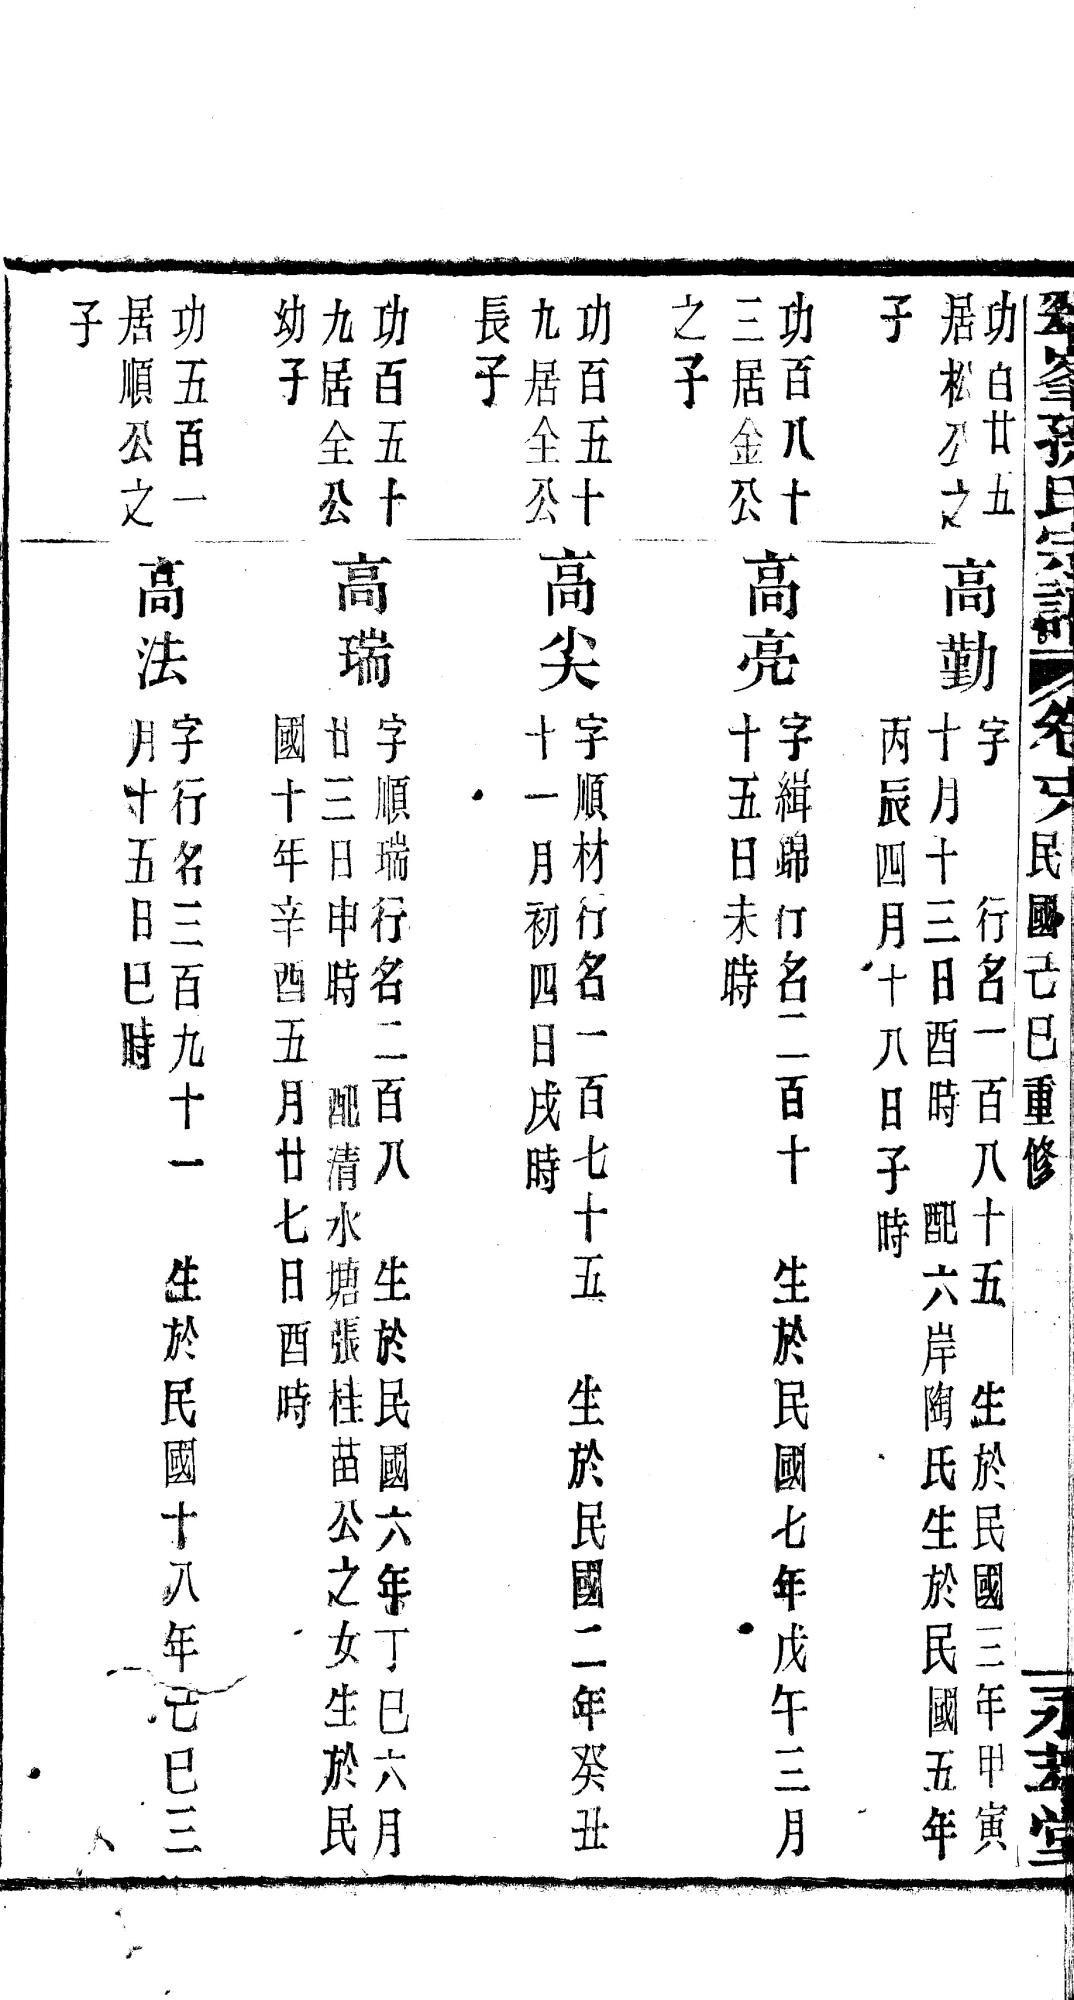 峯孫氏宗譜 卷 民國己巳重修 堂
功百廿五
居松公之
子
高勤
字 行名一百八十五 生於民國三年甲寅
十月十三日酉時 配六岸陶氏生於民國五年
丙辰四月十八日子時
功百八十
三居金公
之子
高亮
字緝錦行名二百十 生於民國七年戊午三月
十五日未時
功百五十
九居全公
長子
高尖
字順材行名一百七十五 生於民國二年癸丑
十一月初四日戌時
功百五十
九居全公
幼子
高瑞
字順瑞行名二百八 生於民國六年丁巳六月
廿三日申時 配清水塘張桂苗公之女生於民
國十年辛酉五月廿七日酉時
功五百一
居順公之
子
高法
字行名三百九十一 生於民國十八年己巳三
月十五日巳時